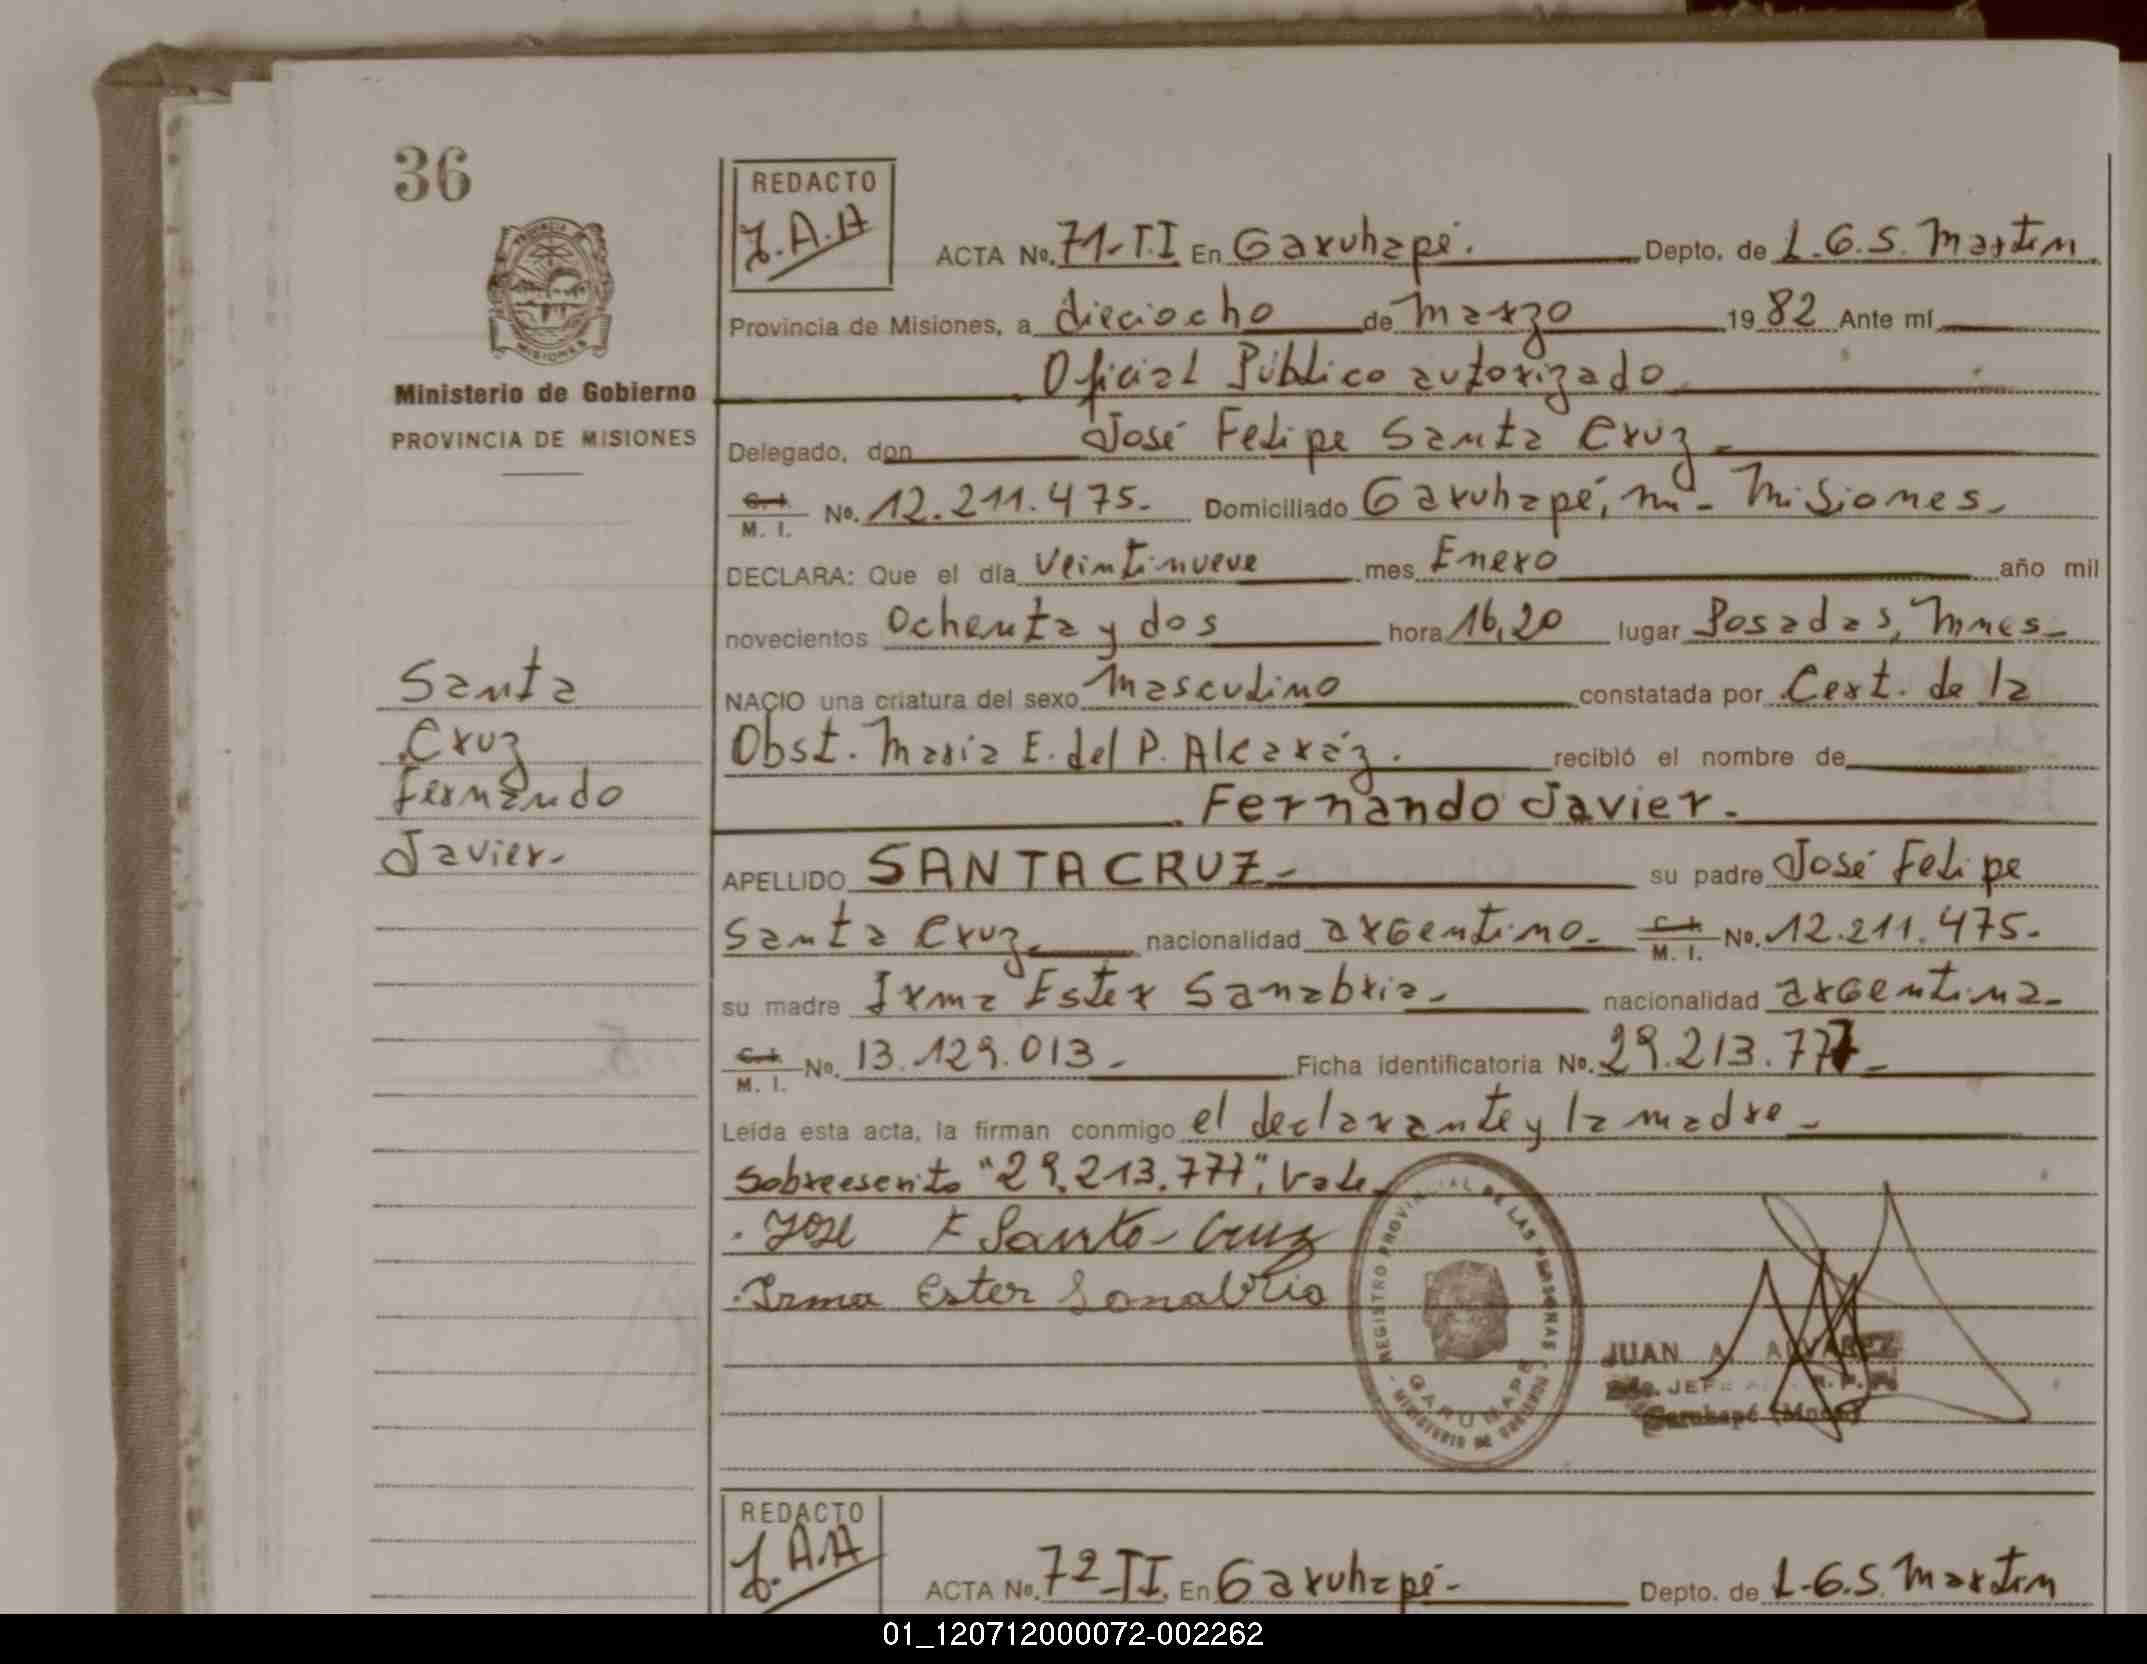 36
PROVINCIA DE
MISIONES
Ministerio de Gobierno
PROVINCIA DE MISIONES
Santa
Cruz
Fernando
Javier.-
REDACTO
J.A.A
ACTA No. 71-T.I En Garuhapé. Depto. de L.G.S. Martin
Provincia de Misiones, a dieciocho de Marzo 1982 Ante mí
Oficial Público autorizado
Delegado, don José Felipe Santa Cruz.-
C. I. M. I. No. 12.211.475.- Domiciliado Garuhapé, Mnes.- Misiones.-
DECLARA: Que el día veintinueve mes Enero año mil
novecientos Ochenta y dos hora 16,20 lugar Posadas, Mnes.-
NACIO una criatura del sexo Masculino constatada por Cert. de la
Obst. Maria E. del P. Alcaráz. recibió el nombre de
Fernando Javier.-
APELLIDO SANTA CRUZ.- su padre José Felipe
Santa Cruz.- nacionalidad argentino.- C. I. M. I. No. 12.211.475.-
su madre Irma Ester Sanabria.- nacionalidad argentina.-
C. I. M. I. No. 13.129.013.- Ficha identificatoria No. 29.213.777.-
Leída esta acta, la firman conmigo el declarante y la madre.-
Sobreescrito "29.213.777", Vale.
José F Santa-Cruz
Irma Ester Sanabria
REGISTRO PROVINCIAL DE LAS PERSONAS
GARUHAPE
MINISTERIO DE GOBIERNO
JUAN A. ALVAREZ
JEFE R. P. P.
Garuhapé (Mnes)
REDACTO
J.A.A
ACTA No. 72-TI. En Garuhapé.- Depto. de L.G.S. Martin
01_120712000072-002262